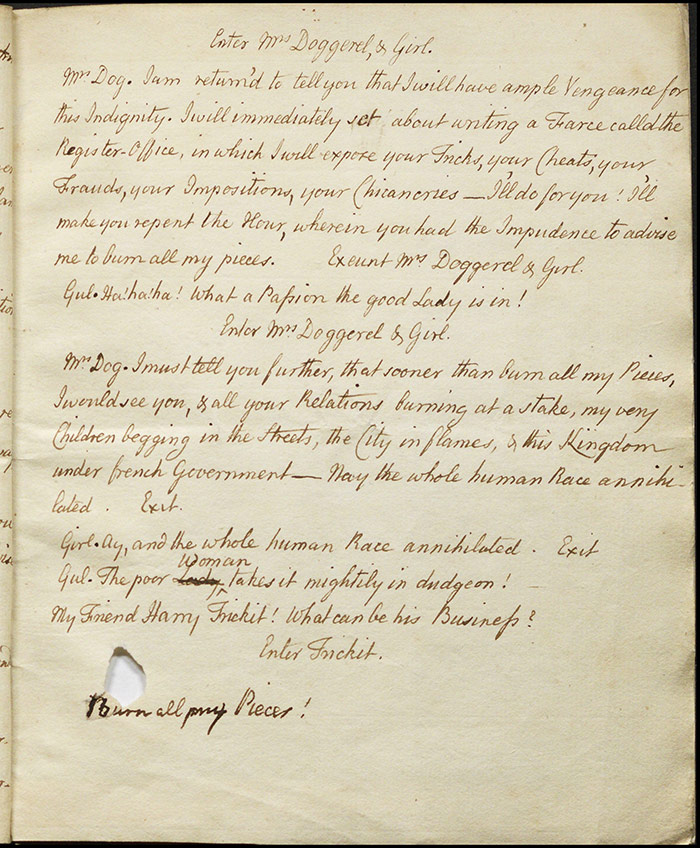 Enter Mrs Doggerel, & Girl.
Mrs Dog. I am return'd to tell you that I will have ample Vengeance for
this Indignity. I will immediately set about writing a Farce called the
Register-Office, in which I will expose your Tricks, your Cheats, your
Frauds, your Impositions, your Chicaneries — I'll do for you! I'll
make you repent the Hour, wherein you had the Impudence to advise
me to burn all my pieces. Exeunt Mrs Doggerel & Girl.
Gul. Ha! ha! ha! What a Paſsion the good Lady is in!
Enter Mrs Doggerel & Girl.
Mrs Dog. I must tell you further, that sooner than burn all my Pieces,
I would see you, & all your Relations burning at a stake, my very
Children begging in the Streets, the City in flames, & this Kingdom
under french Government — Nay the whole human Race annihi-
lated. Exit.
Girl. Ay, and the whole human Race annihilated. Exit
Woman
Gul. The poor Lady takes it mightily in dudgeon!
My Friend Harry Trickit! What can be his Busineſs?
Enter Trickit.
Burn all my Pieces!